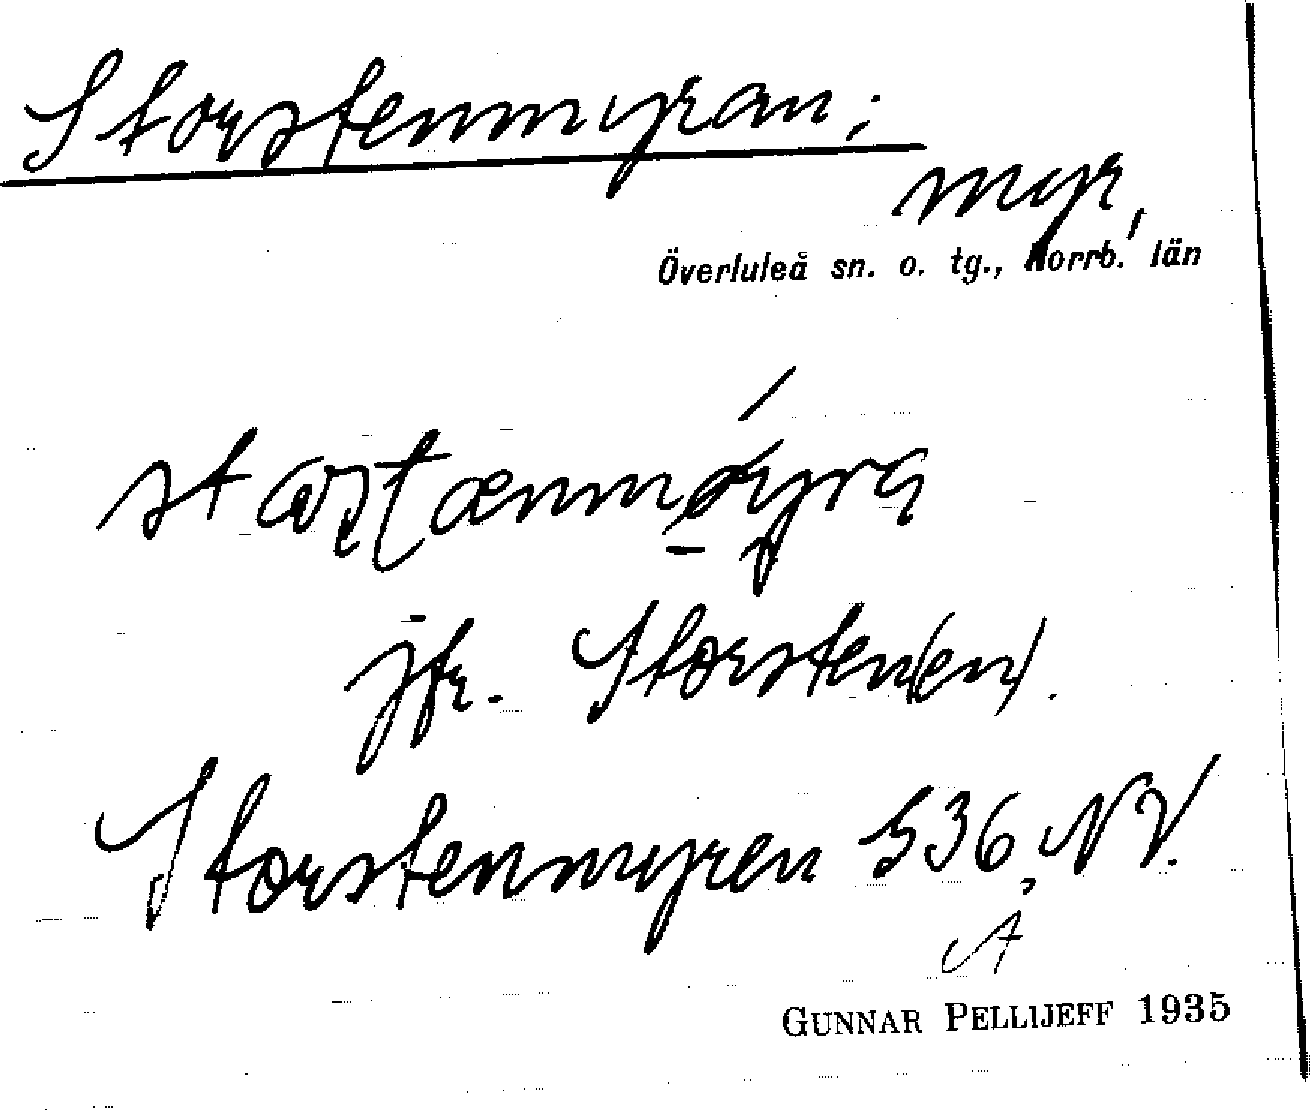 Storstenmyran;
myr,
Överluleå sn. o. tg., Norrb. län
jfr. Storsten(en).
Storstenmyren 536, NV.
A
GUNNAR PELLIJEFF 1935